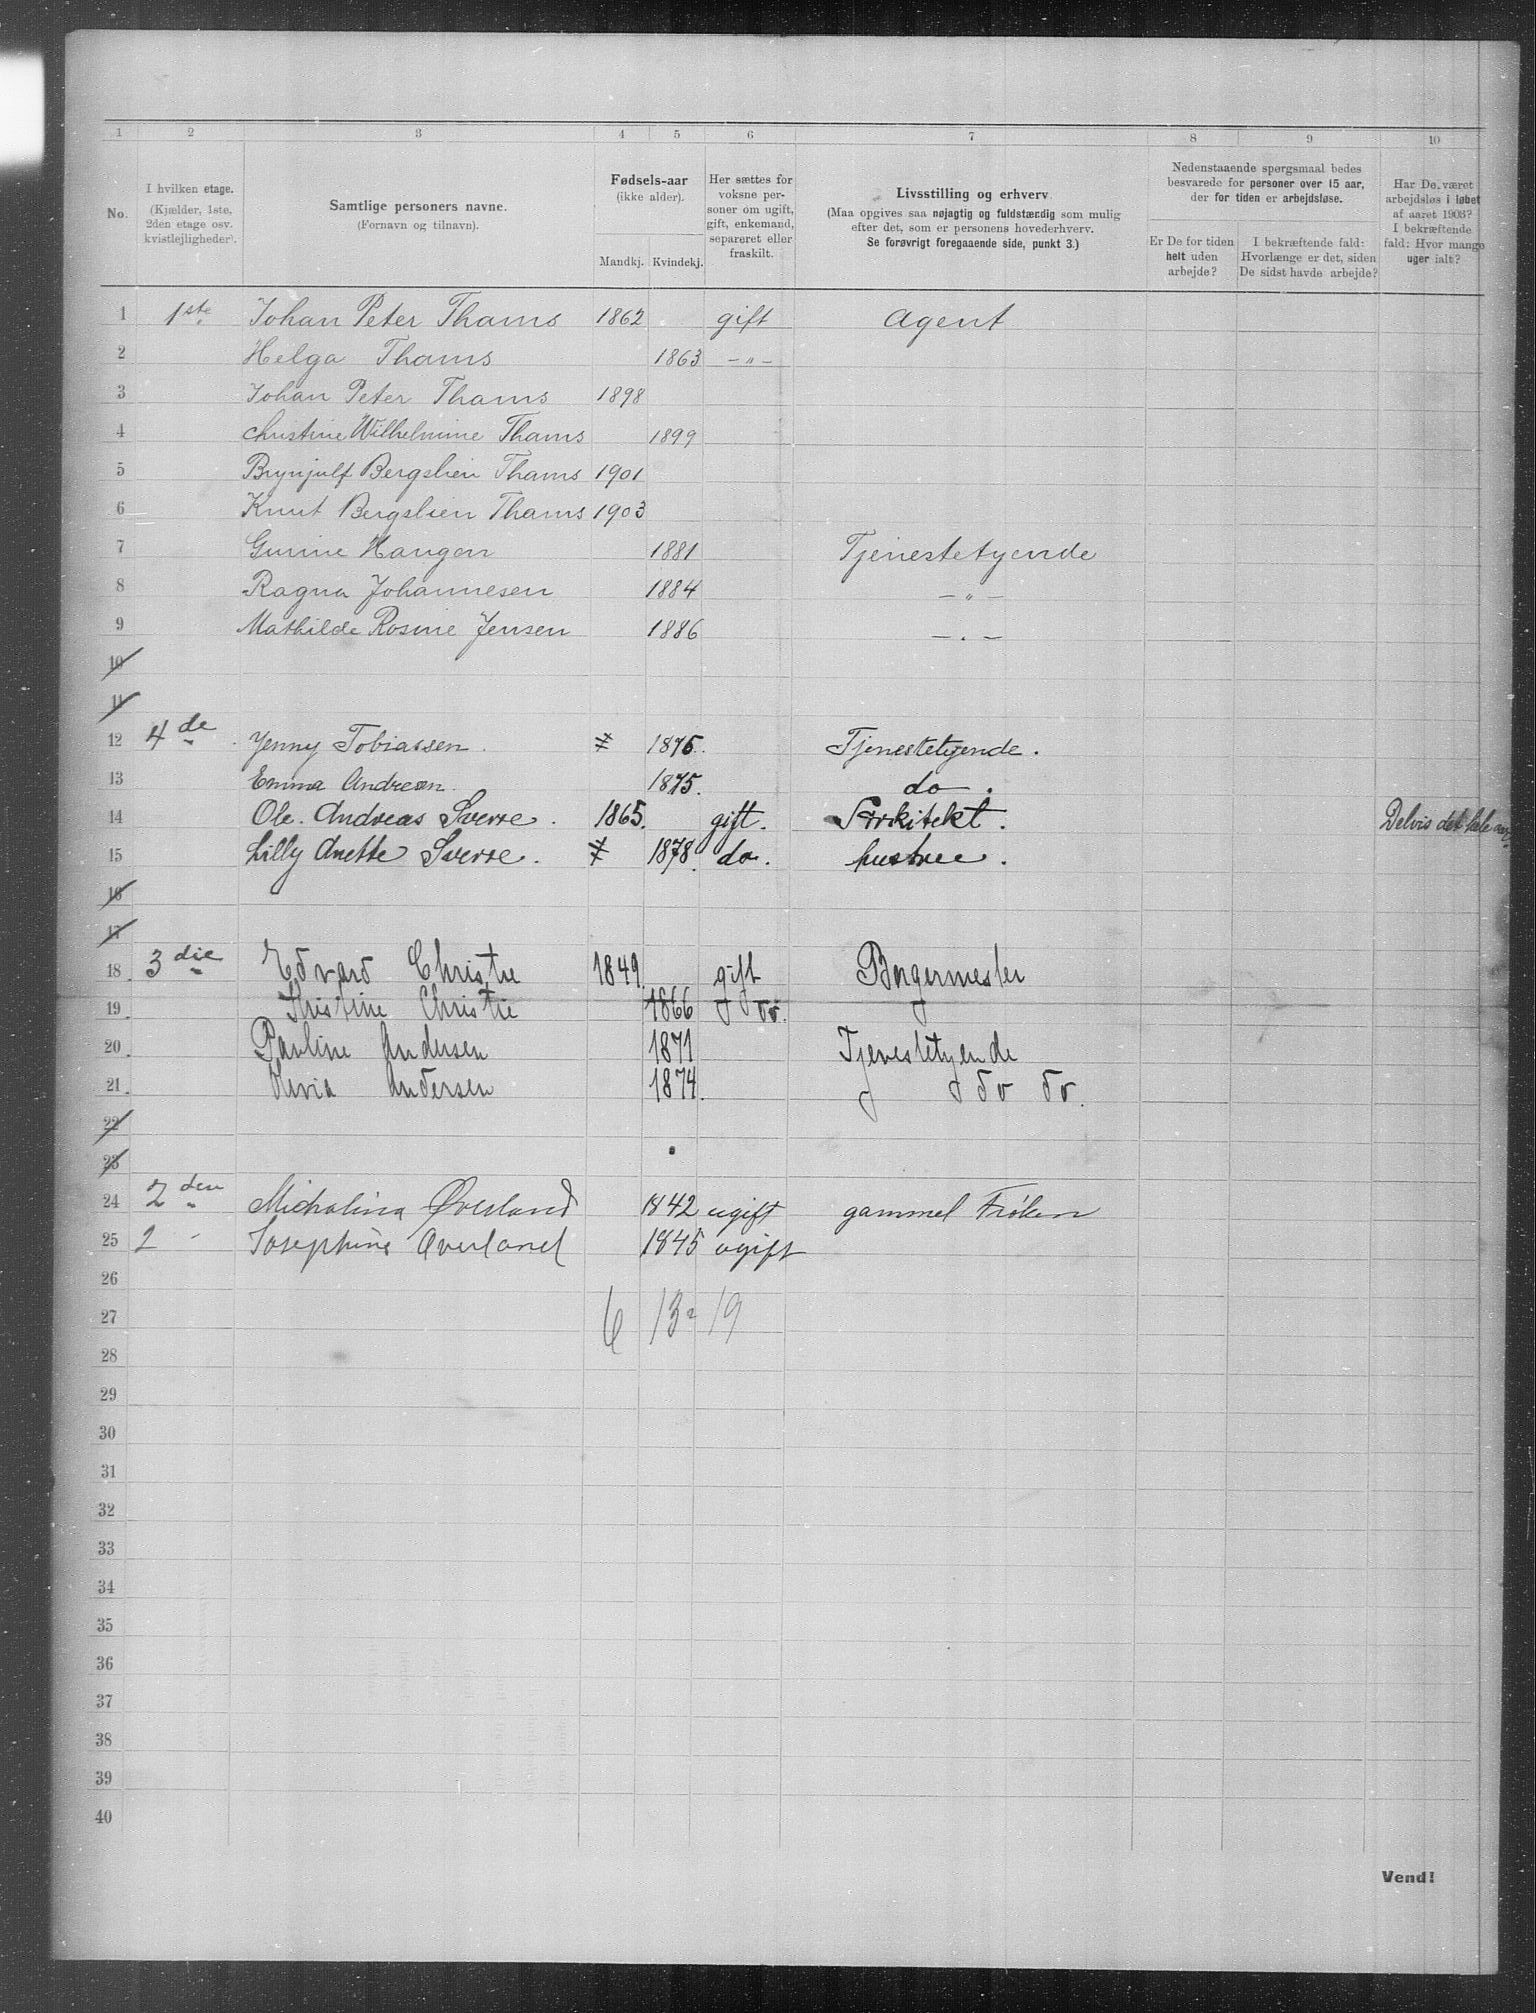 1 2 3 4 5 6 7 8 9 10
No.
I hvilken etage.
(Kjælder, 1ste,
2den etage osv.
kvistlejligheder).
Samtlige personers navne.
(Fornavn og tilnavn).
Fødsels-aar
(ikke alder).
Mandkj. Kvindekj.
Her sættes for
voksne per-
soner om ugift,
gift, enkemand,
separeret eller
fraskilt.
Livsstilling og erhverv.
(Maa opgives saa nøjagtig og fuldstærdig som mulig
efter det, som er personens hovederhverv.
Se forøvrigt foregaaende side, punkt 3.)
Nedenstaaende spørgsmaal bedes
besvarede for personer over 15 aar,
der for tiden er arbejdsløse.
Er De for tiden
helt uden
arbejde?
I bekræftende fald:
Hvorlænge er det, siden
De sidst havde arbejde?
Har De været
arbejdsløs i løbet
af aaret 1903?
I bekræftende
fald: Hvor mange
uger ialt?
1 1ste Johan Peter Thams 1862 gift Agent
2 Helga Thams 1863 -"-
3 Johan Peter Thams 1898
4 Christine Wilhelmine Thams 1899
5 Brynjulf Bergslien Thams 1901
6 Knut Bergslien Thams 1903
7 Gurine Haugen 1881 Tjenestetyende
8 Ragna Johannesen 1884 -"-
9 Mathilde Rosine Jensen 1886 -"-
10
11
12 4de Jenny Tobiassen 1875. Tjenestetyende.
13 Emma Andresen. 1875. do.
14 Ole. Andreas Sverre. 1865. gift. Arkitekt. Delvis det hele aar.
15 Lilly Anette Sverre. 1878. do. hustrue.
16
17
18 3die Edvard Christie 1849. gift Borgermester
19 Kristine Christie 1866 do.
20 Pauline Andersen 1871 Tjenestetyende
21 Olivia Andersen 1874. do do.
22
23
24 2den Michaline Øverland 1842 ugift gammel Frøken
25 2 - Josephine Øverland 1845 ugift
26
27 6 13 = 19
28
29
30
31
32
33
34
35
36
37
38
39
40
Vend!